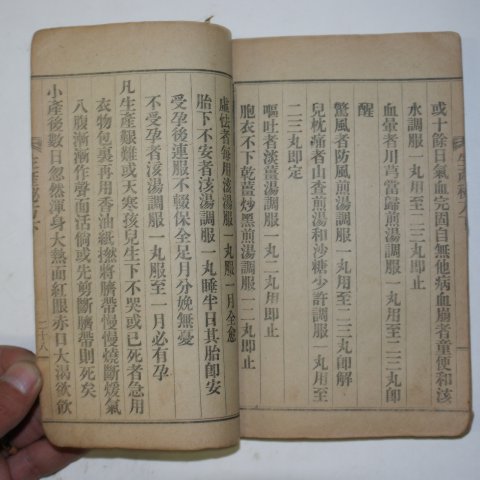 或十餘日氣血完固自無他病血崩者童便和該
水調服一丸用至二三丸即止
血暈者川芎當歸煎湯調服一丸用至二三丸即
醒
驚風者防風煎湯調服一丸用至二三丸即解
兒枕痛者山查煎湯和沙糖少許調服一丸用至
二三丸即定
嘔吐者淡薑湯調服一丸二丸用即止
胞衣不下乾薑炒黑煎湯調服一二丸即止
虛怯者每用滾湯服一丸服一月全愈
胎下不安者滾湯調服一丸睡半日其胎即安
受孕後連服不輟保全足月分娩無憂
不受孕者滾湯調服一丸服至一月必有孕
凡生產艱難或天寒孩兒生下不哭或已死者急用
衣物包裹再用香油紙撚將臍帶慢慢燒斷煖氣
入腹漸漸作聲面活倘或先剪斷臍帶則死矣
小產後數日忽然渾身大熱面紅眼赤口大渴欲飲